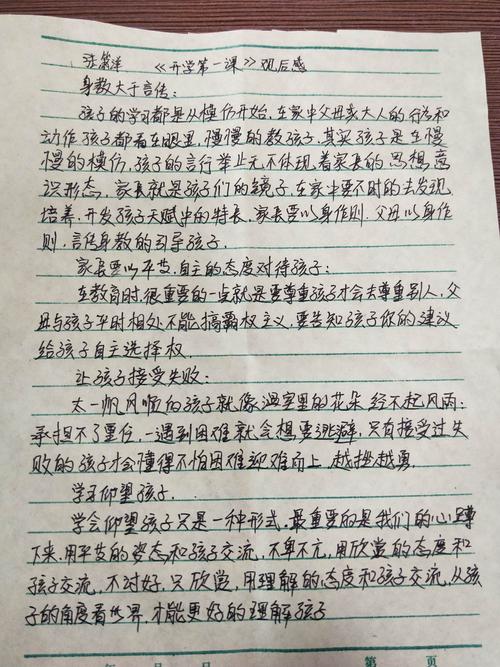 《开学第一课》观后感
身教大于言传：
孩子的学习都是从模仿开始，在家中父母亲大人的行为和
动作孩子都看在眼里，慢慢的教孩子，其实孩子是在慢
慢的模仿，孩子的言行举止无不体现着家长的思想，意
识形态，家长就是孩子们的镜子，在家中要不时的去发现
培养，开发孩子天赋中的特长，家长要以身作则，父母以身作
则，言传身教的引导孩子。
家长要以平等、自主的态度对待孩子：
在教育时，很重要的一点就是要尊重孩子才会去尊重别人，父
母与孩子平时相处不能搞霸权主义，要告知孩子你的建议
给孩子自主选择权。
让孩子接受失败：
太一帆风顺的孩子就像温室里的花朵 经不起风雨；
承担不了重任，一遇到困难就会想要逃避，只有接受过失
败的孩子才会懂得不怕困难迎难而上，越挫越勇。
学习仰望孩子.
学会仰望孩子只是一种形式，最重要的是我们的心蹲
下来，用平等的姿态和孩子交流，不卑不亢，用欣赏的态度和
孩子交流，不讨好，只欣赏，用理解的态度和孩子交流，从孩
子的角度看世界，才能更好的理解孩子
年 月 日 第 页